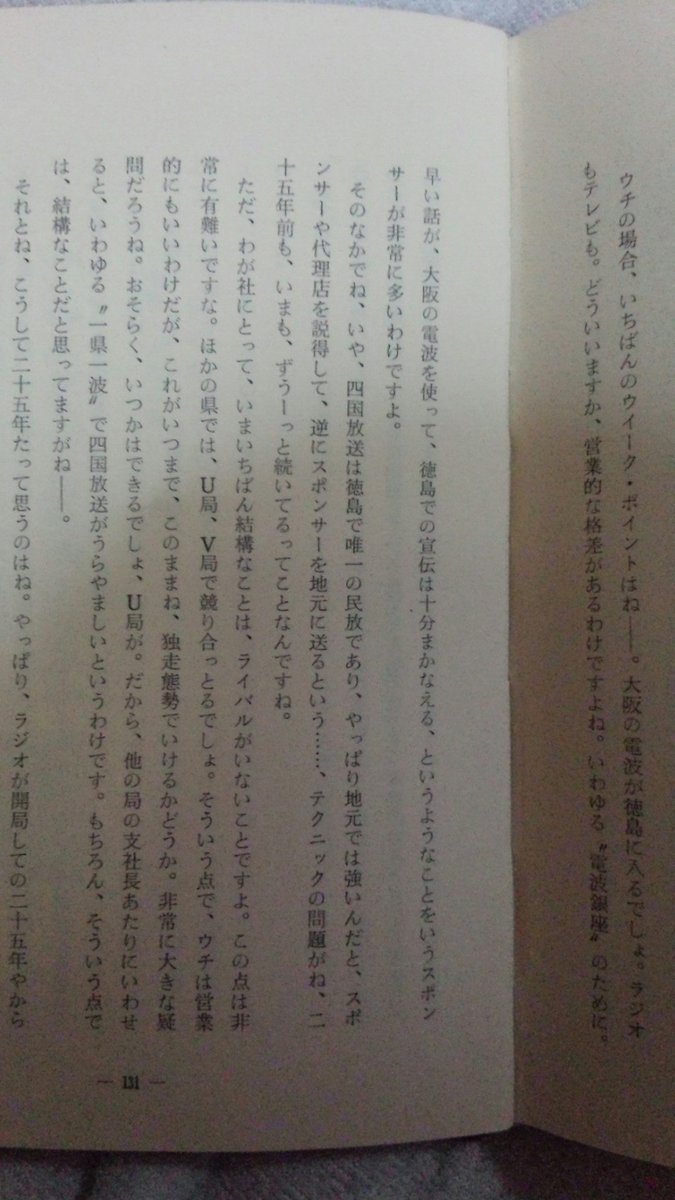 ウチの場合、いちばんのウイーク・ポイントはね――。大阪の電波が徳島に入るでしょ。ラジオ
もテレビも。どういいますか、営業的な格差があるわけですよね。いわゆる〝電波銀座〟のために。
早い話が、大阪の電波を使って、徳島での宣伝は十分まかなえる、というようなことをいうスポン
サーが非常に多いわけですよ。
そのなかでね、いや、四国放送は徳島で唯一の民放であり、やっぱり地元では強いんだと、スポ
ンサーや代理店を説得して、逆にスポンサーを地元に送るという……、テクニックの問題がね、二
十五年前も、いまも、ずうーっと続いてるってことなんですね。
ただ、わが社にとって、いまいちばん結構なことは、ライバルがいないことですよ。この点は非
常に有難いですな。ほかの県では、U局、V局で競り合っとるでしょ。そういう点で、ウチは営業
的にもいいわけだが、これがいつまで、このままね、独走態勢でいけるかどうか。非常に大きな疑
問だろうね。おそらく、いつかはできるでしょ、U局が。だから、他の局の支社長あたりにいわせ
ると、いわゆる〝一県一波〟で四国放送がうらやましいというわけです。もちろん、そういう点で
は、結構なことだと思ってますがね――。
それとね、こうして二十五年たって思うのはね。やっぱり、ラジオが開局しての二十五年やから
― 131 ―